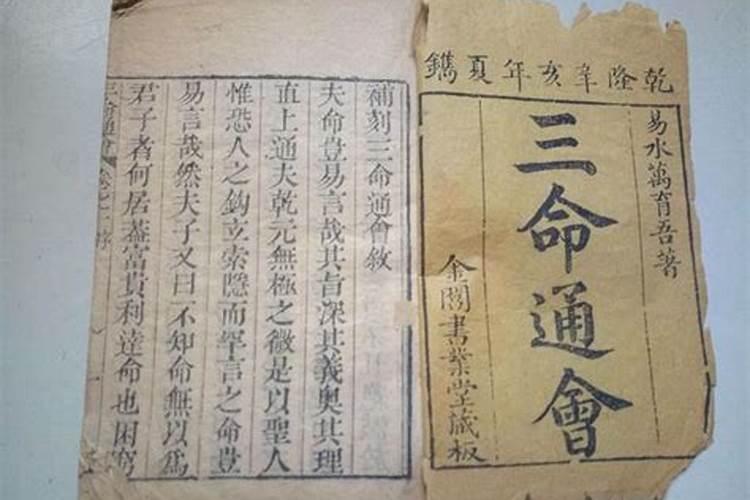 乾隆辛亥年夏鐫
易水萬育吾著
三命通會
金閶書業堂藏板
補刻三命通會敘
夫命豈易言哉其旨深其義奧其理
直上通夫乾元無極之微是以聖人
惟恐人之鈎立索隱而罕言之命豈
易言哉然夫子又曰不知命無以為
君子者何居葢富貴利達命也困窮
三命通會